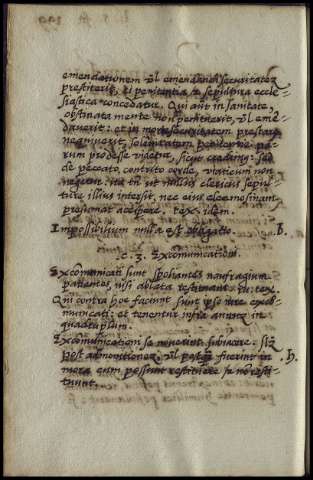 emendationem vel emendandi securitatem
prestiterit, ei penitentia et sepultura eccle-
siastica concedatur. Qui aut in sanitate,
obstinata mente non penituerit, vel eme-
dauerit: et in morte securitatem prestare
nequiuerit, solam tamen penitentie pa-
rum prodesse videtur, sicut credimus: sed
de peccato, contrito corde, viaticum non
negetur: ita tn ut nullus clericus sepul-
ture illius intersit, nec eius elemosinam
presumat accipere. tex. idem.
Impossibilium nulla est obligatio. .B.
.c. 3. Excomunicationi.
Excomunicati sunt spoliantes naufragium
patientes, nisi ablata restituant. tu. tex.
Qui contra hoc faciunt sunt ipso iure exco-
municati: et tenentur infra annum in
quadruplum.
Excomunicationi se nouerint subiacere. sz
post admonitionem. vel postq fuerint in
mora cum possunt restituere et no resti-
tuunt. .h.